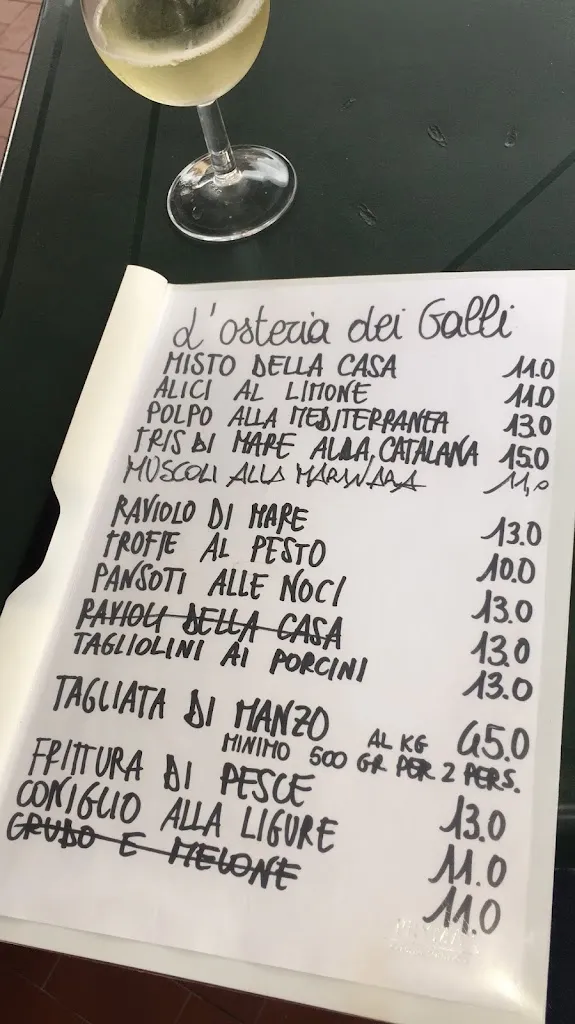 L'osteria dei Galli
MISTO DELLA CASA 11.0
ALICI AL LIMONE 11.0
POLPO ALLA MEDITERRANEA 13.0
TRIS DI MARE ALLA CATALANA 15.0
MUSCOLI ALLA MARINARA 11,0
RAVIOLO DI MARE 13.0
TROFIE AL PESTO 10.0
PANSOTI ALLE NOCI 13.0
RAVIOLI DELLA CASA 13.0
TAGLIOLINI AI PORCINI 13.0
TAGLIATA DI MANZO AL KG 45.0
MINIMO 500 GR PER 2 PERS.
FRITTURA DI PESCE 13.0
CONIGLIO ALLA LIGURE 11.0
CRUDO E MELONE 11.0